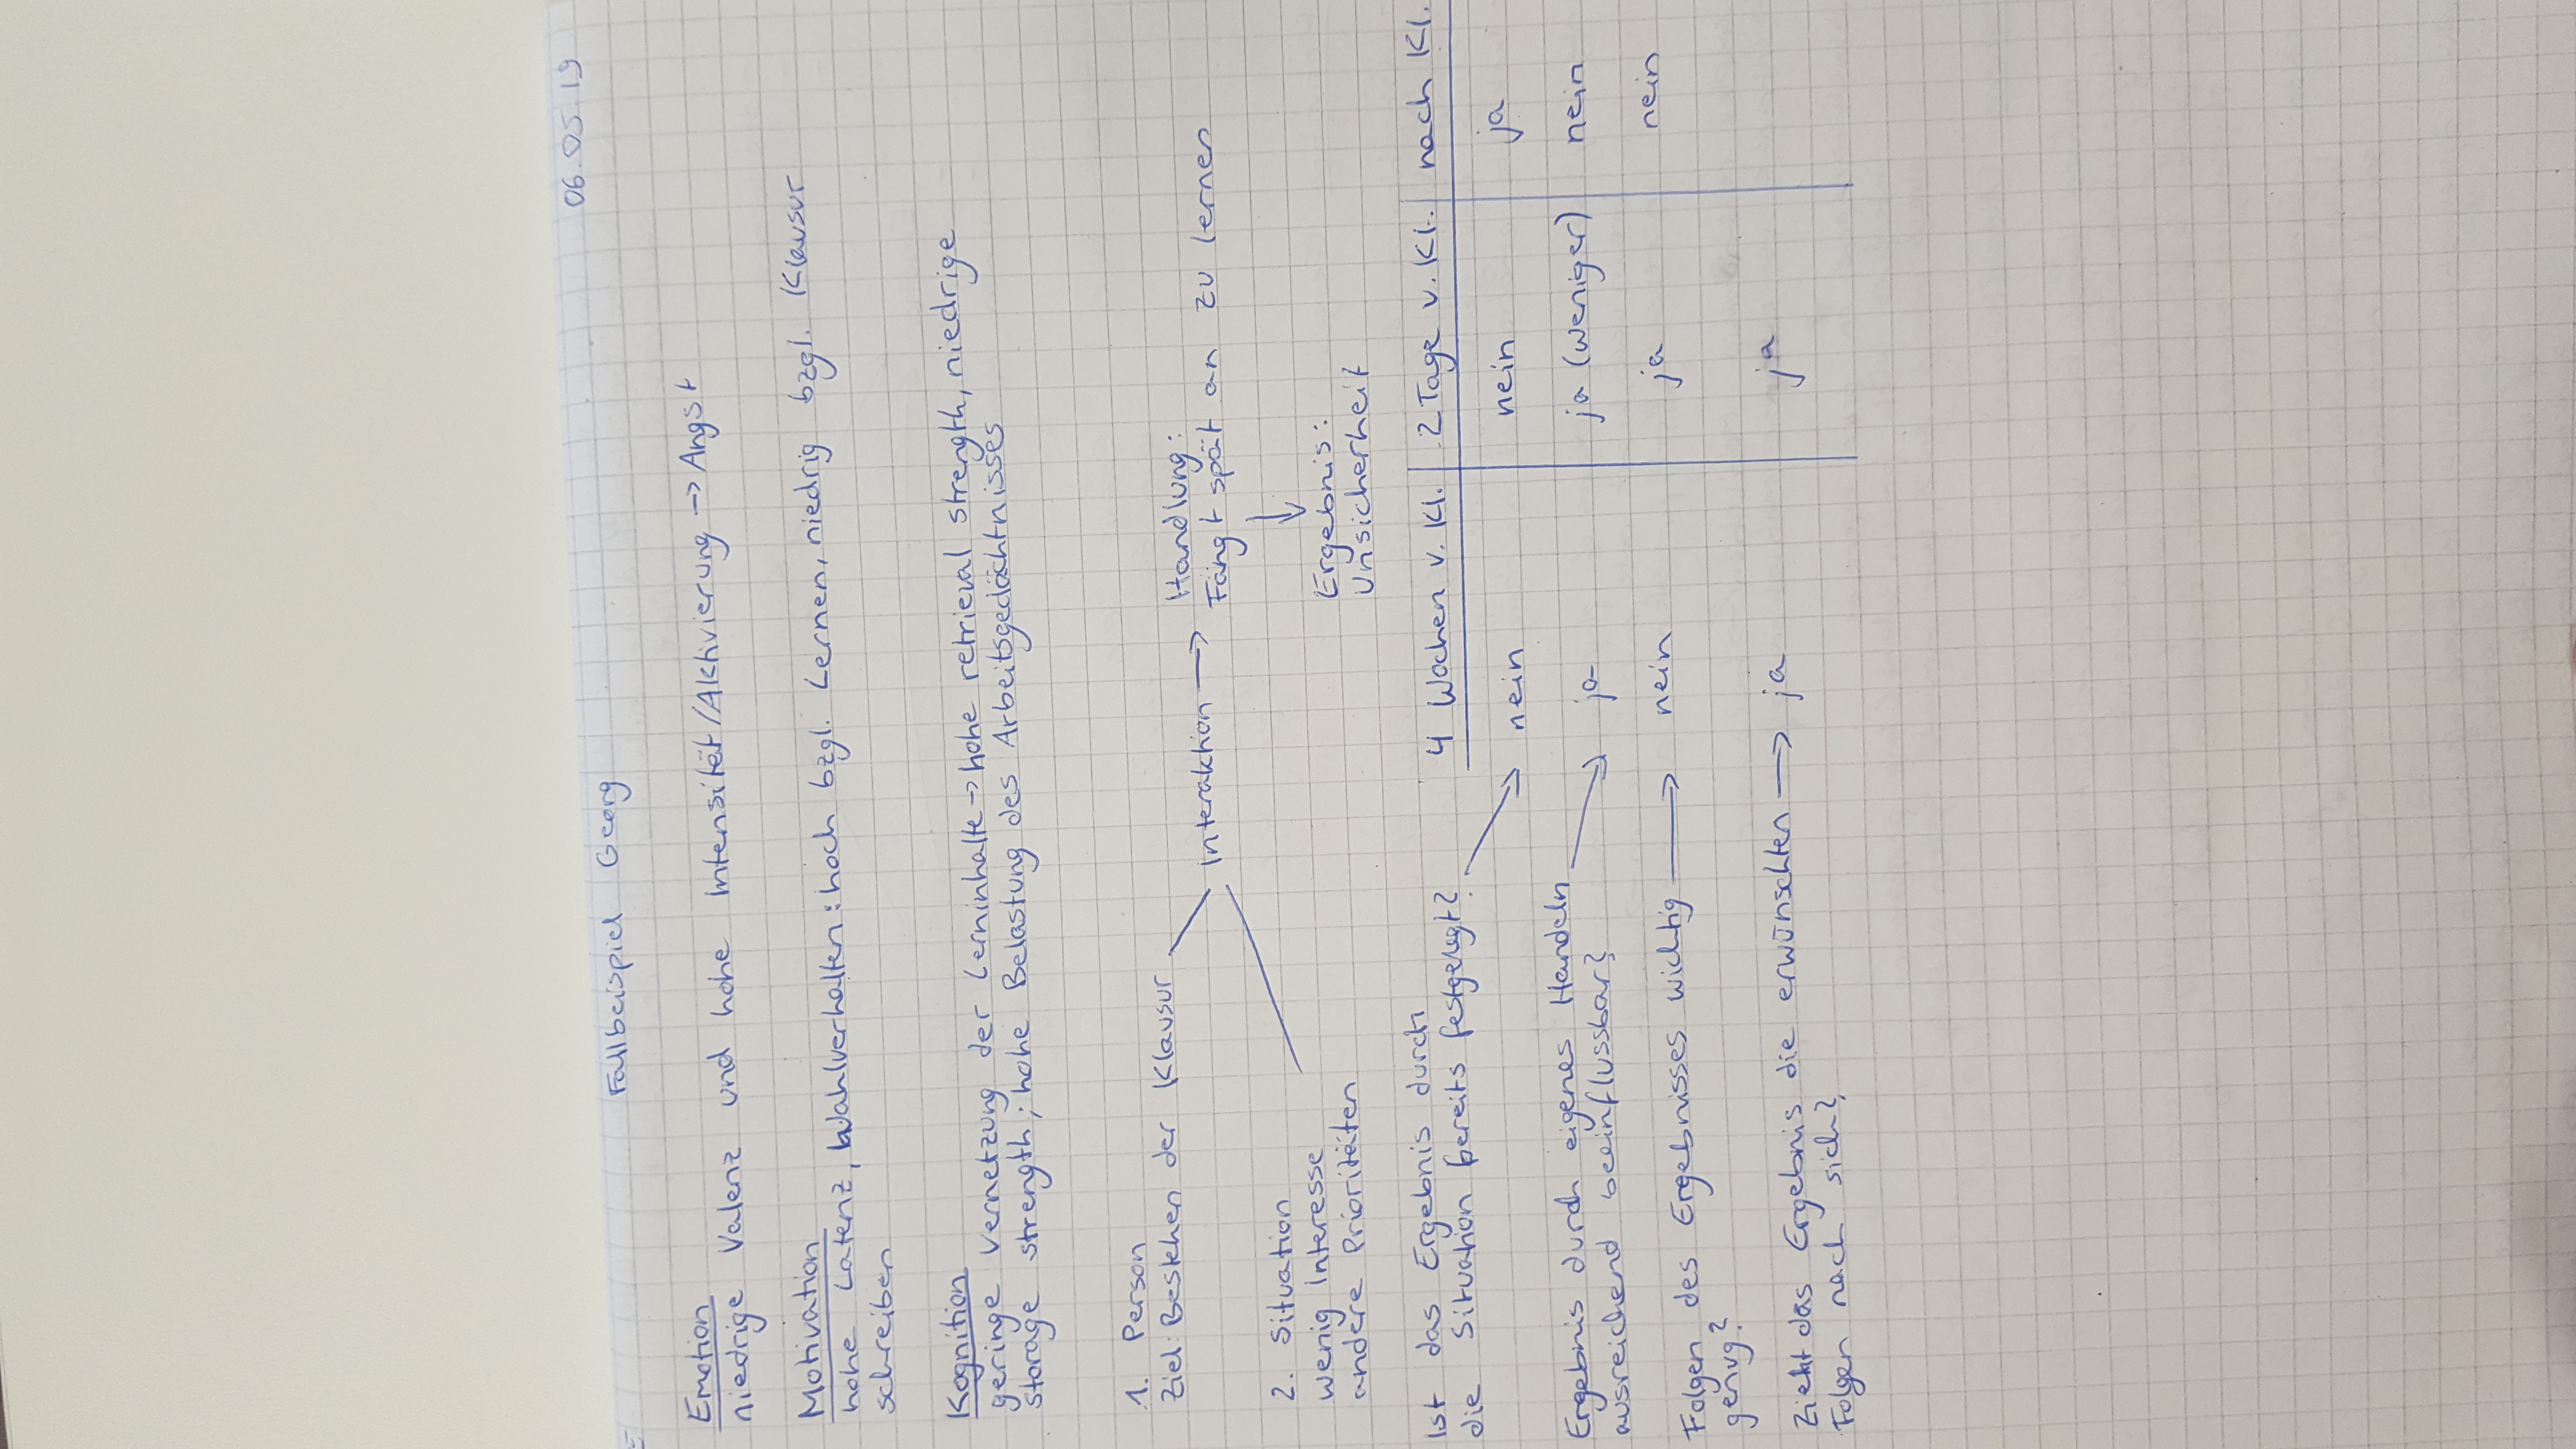 06.05.19
Fallbeispiel Georg
Emotion
niedrige Valenz und hohe Intensität/Aktivierung → Angst
Motivation
hohe Latenz, Wahlverhalten: hoch bzgl. Lernen, niedrig bzgl. Klausur
schreiben
Kognition
geringe Vernetzung der Lerninhalte → hohe retrieval strength, niedrige
storage strength; hohe Belastung des Arbeitsgedächtnisses
1. Person
Ziel: Bestehen der Klausur
Interaktion →
Handlung:
Fängt spät an zu lernen
2. Situation
wenig Interesse
andere Prioritäten
Ergebnis:
Unsicherheit
Ist das Ergebnis durch
die Situation bereits festgelegt?
4 Wochen v. Kl. 2 Tage v. Kl. nach Kl.
nein nein ja
Ergebnis durch eigenes Handeln
ausreichend beeinflussbar?
ja ja (weniger) nein
Folgen des Ergebnisses wichtig → nein ja nein
genug?
Zieht das Ergebnis die erwünschten → ja ja
Folgen nach sich?